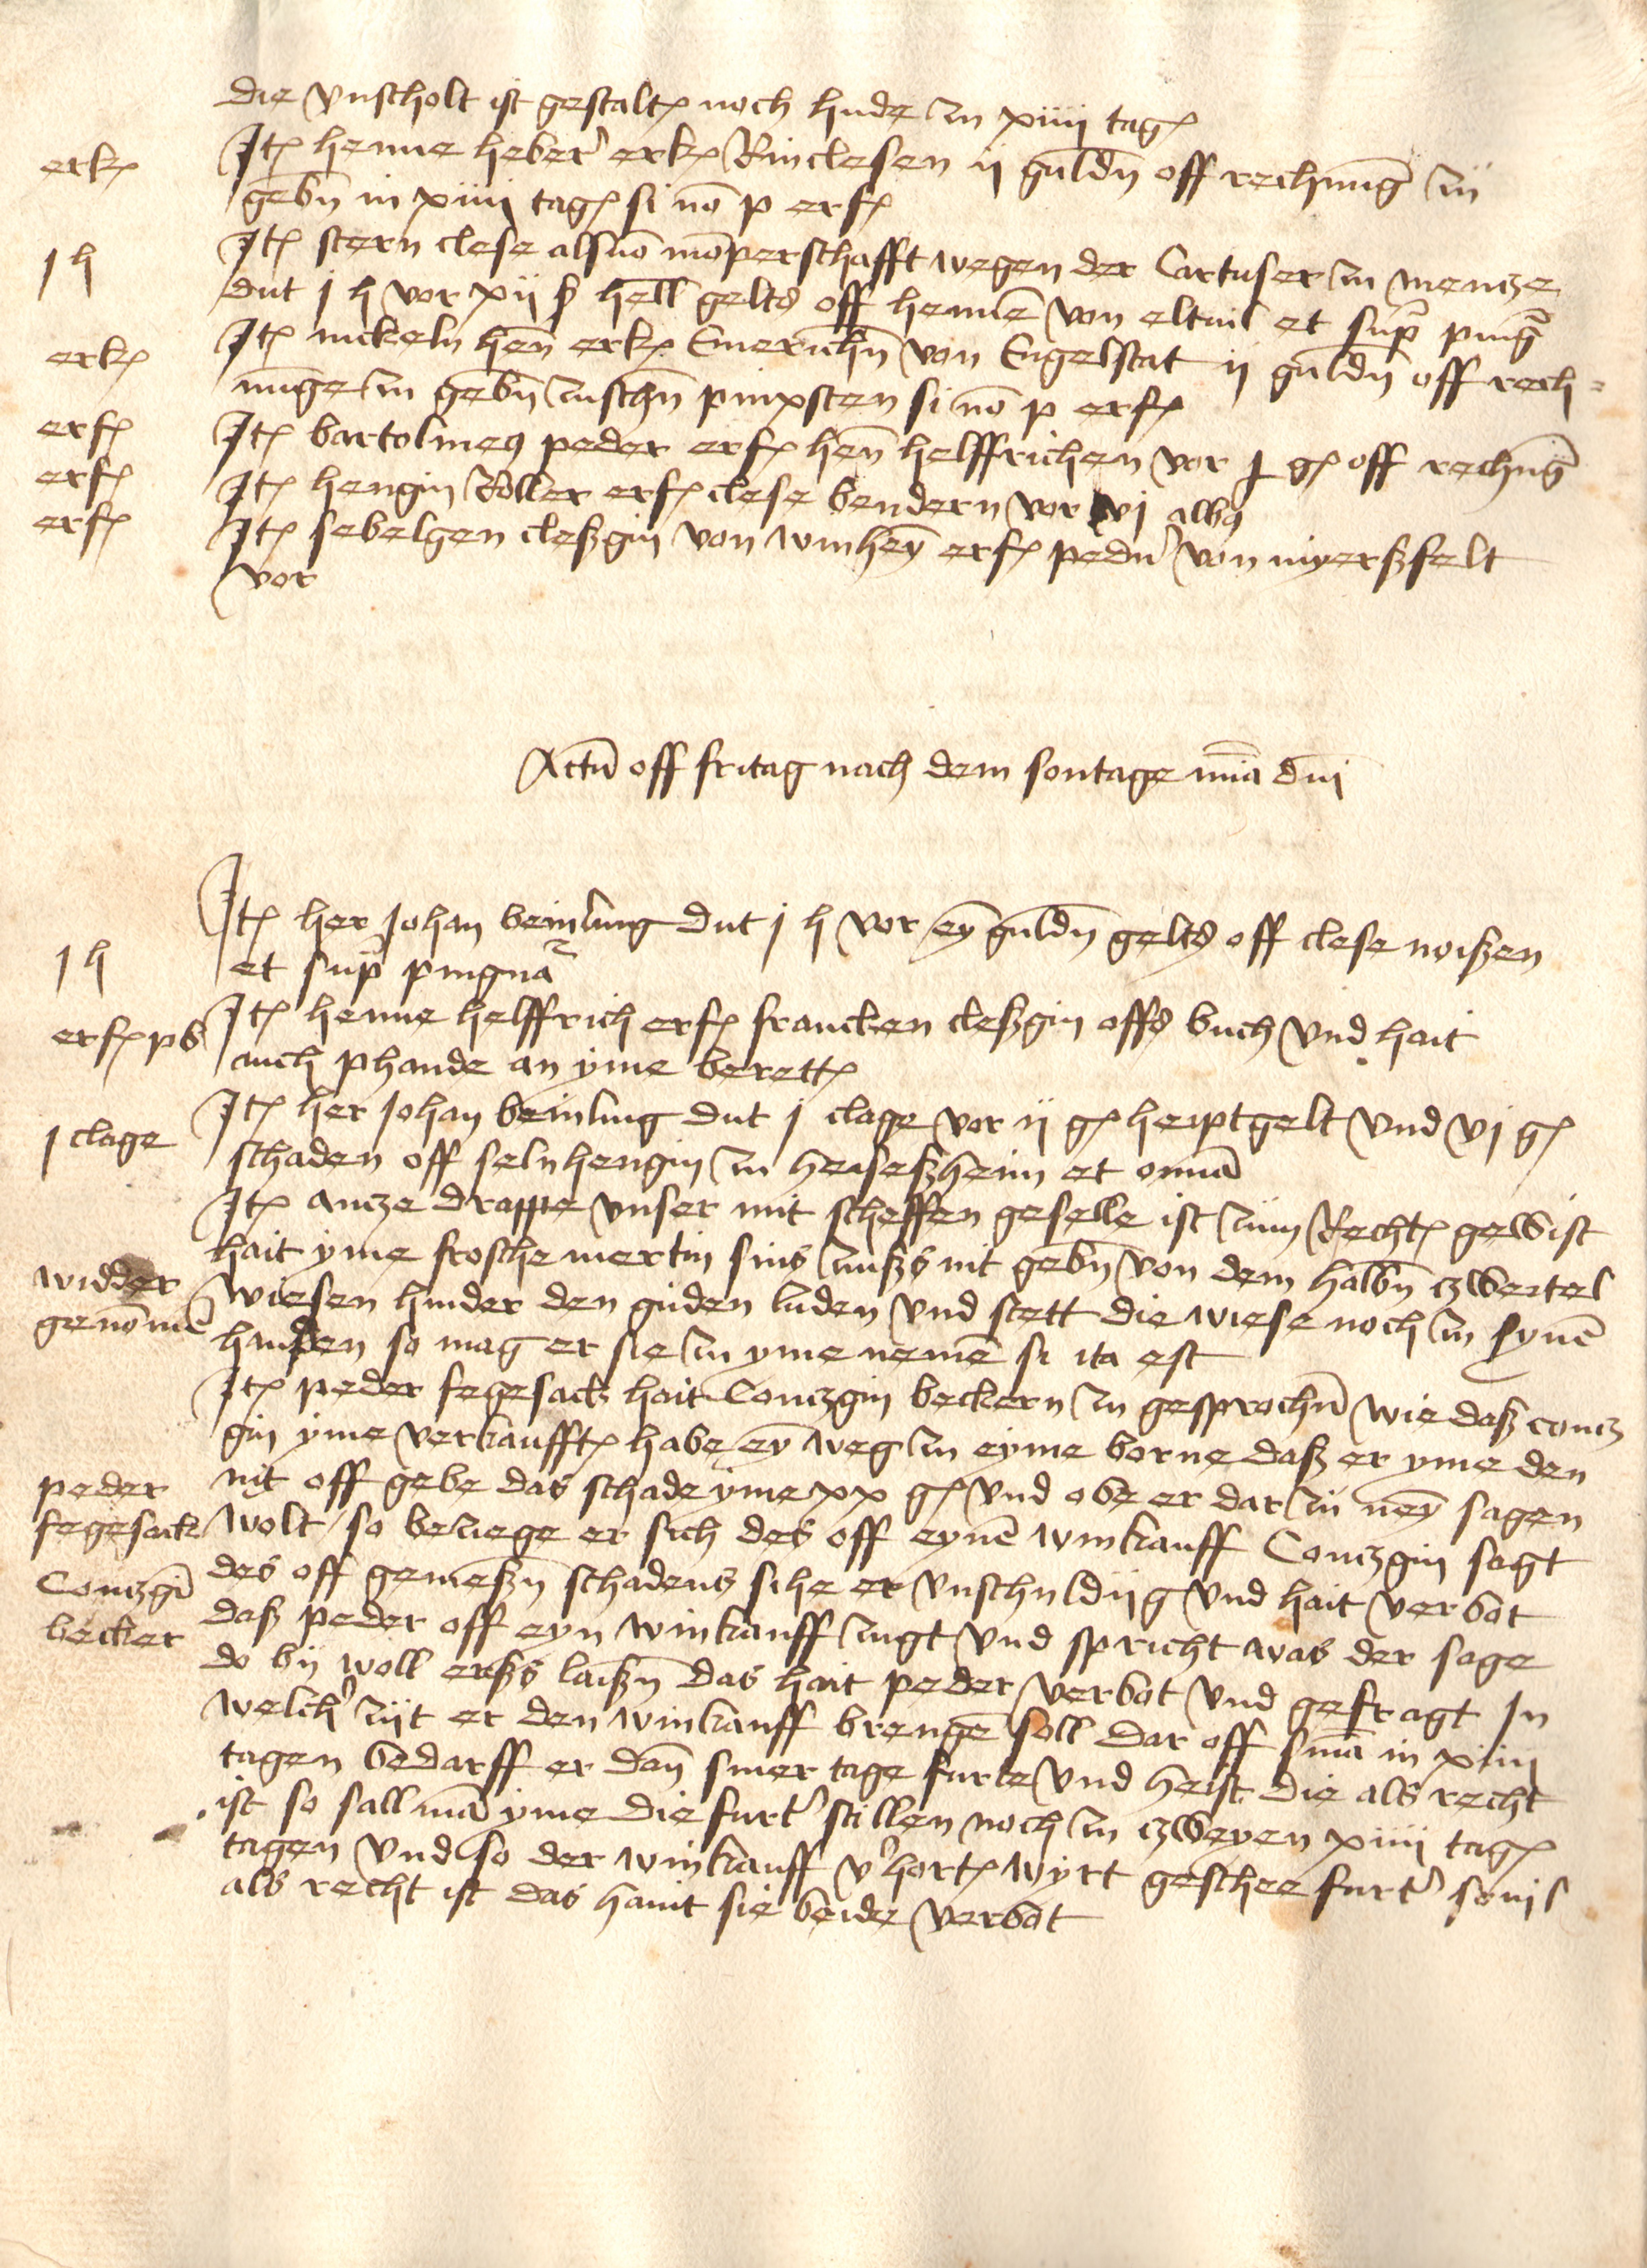 die vnscholt ist gestalt noch hude zu xiiii tag
erk Jt henne heber erk Rinclesen ij guldn off rechnung zu
gebn in xiiij tag si no p erf
j h Jt stern clese als vo monperschafft wegen der Cartuser zu mencze
dut j h vor xij ß hell gelts off henne von eltuil et sup ping
erk Jt nickeln hen erk Emerichn von Engelstat ij guldn off rech=
nunge zu gebn zuschn pinxsten si no p erf
erf Jt bartolmeus peder erf hen helffrichen vor j g off rechnug
erf Jt hengin Roller erf clese bendern vor vj albus
erf Jt sebelgen cleßgin von winheym erf peder von nyerßfelt
vor
Actu off fritag nach dem sontage mia dni
Jt her Johan beinling dut j h vor ey guldn gelts off clese noißen
j h et sup pingua
erf pb Jt henne helffrich erf francken cleßgin offs buch vnd hait
auch phande an yme berett
Jt her Johan beinling dut j clage vor ij g heiptgelt vnd vj g
j clage schaden off seln hengin zu heiseßheim et omia
Jt ancze drappe vnser mit scheffen geselle ist zum Recht gewist
hait yme frosche mertin sins zinßs nit gebn von dem halbn czweitel
widder wiesen hinder den guden luden vnd stett die wiese noch zu synen
genomen handen so mag er sie zu yme nemen si ita est
Jt peder fegesack hait Conczgin beckern zu gesprochn wie daß concz
gin yme verkaufft habe ey weg zu eyme borne daß er yme den
peder nit off gebe das schade yme xx g vnd obe er dar zu ney sagen
fegesack wolt so beziege er sich des off eynen winkauff Conczgin sagt
Conczgin des off gemeßn schadens sihe er vnschuldiig vnd hait verbot
becker daß peder off eyn winkauff zugt vnd spricht was der sage
do by woll erßs laißn das hait peder verbot vnd gefragt In
welch zijt er den winkauff brengen soll dar off sma in xiiii
tagen bedarff er dan siner tage furte vnd heist die als recht
ist so sall man yme die furt stillen noch zu czweyen xiiii tag
tagen vnd so der winkauff vhort wyrt geschee furt souil
als recht ist das hant sie beide verbot